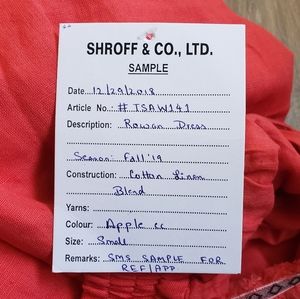 SHROFF & CO., LTD.
SAMPLE
Date 12/29/2018
Article No.: #TSAW141
Description: Rowan Dress
Season: Fall '19
Construction: Cotton Linen
Blend
Yarns:
Colour: Apple cc
Size: Small
Remarks: SMS SAMPLE FOR
REF/APP